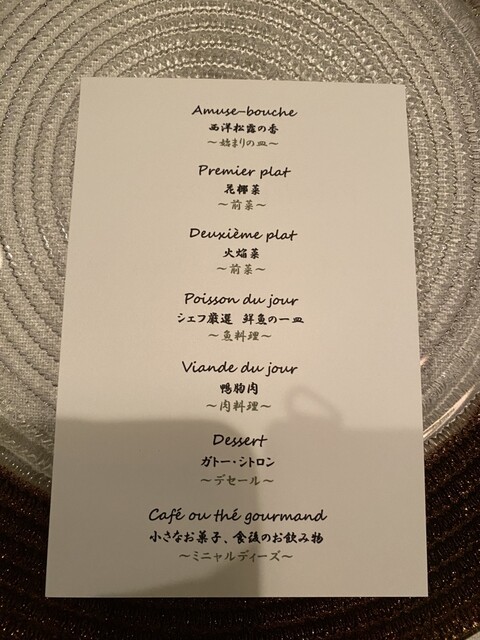 Amuse-bouche
西洋松露の香
～始まりの皿～
Premier plat
花椰菜
～前菜～
Deuxième plat
火焔菜
～前菜～
Poisson du jour
シェフ厳選 鮮魚の一皿
～魚料理～
Viande du jour
鴨胸肉
～肉料理～
Dessert
ガトー・シトロン
～デセール～
Café ou thé gourmand
小さなお菓子、食後のお飲み物
～ミニャルディーズ～